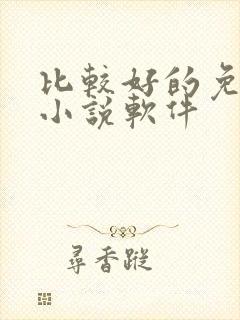 比較好的免
小說軟件
尋香蹤